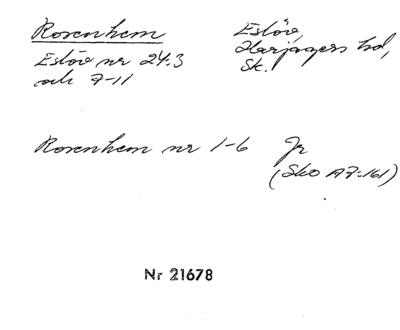 Rosenhem
Eslöv nr 24:3
och 7-11
Eslöv,
Harjagers hd,
Sk.
Rosenhem nr 1-6 Jr
(Sko A7:161)
Nr 21678